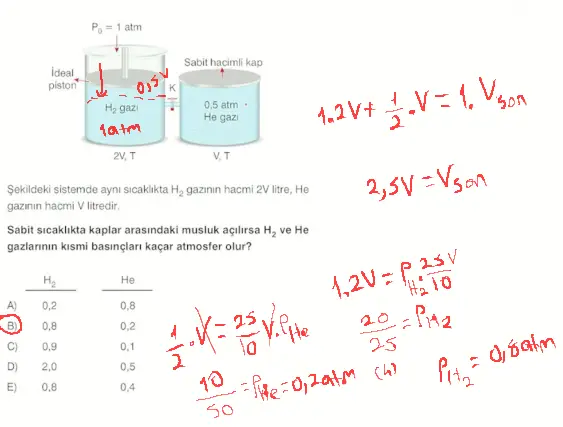 P₀ = 1 atm
İdeal piston
0,5V
Sabit hacimli kap
K
H₂ gazı
1atm
0,5 atm
He gazı
2V, T
V, T
Şekildeki sistemde aynı sıcaklıkta H₂ gazının hacmi 2V litre, He
gazının hacmi V litredir.
Sabit sıcaklıkta kaplar arasındaki musluk açılırsa H₂ ve He
gazlarının kısmi basınçları kaçar atmosfer olur?
H₂ He
A) 0,2 0,8
B) 0,8 0,2
C) 0,9 0,1
D) 2,0 0,5
E) 0,8 0,4
1.2V + 1/2 .V = 1. Vson
2,5V = Vson
1.2V = PH₂ . 25V/10
20/25 = PH2
PH₂ = 0,8atm
1/2 .V = 25/10 V.PHe
10/50 = PHe = 0,2atm